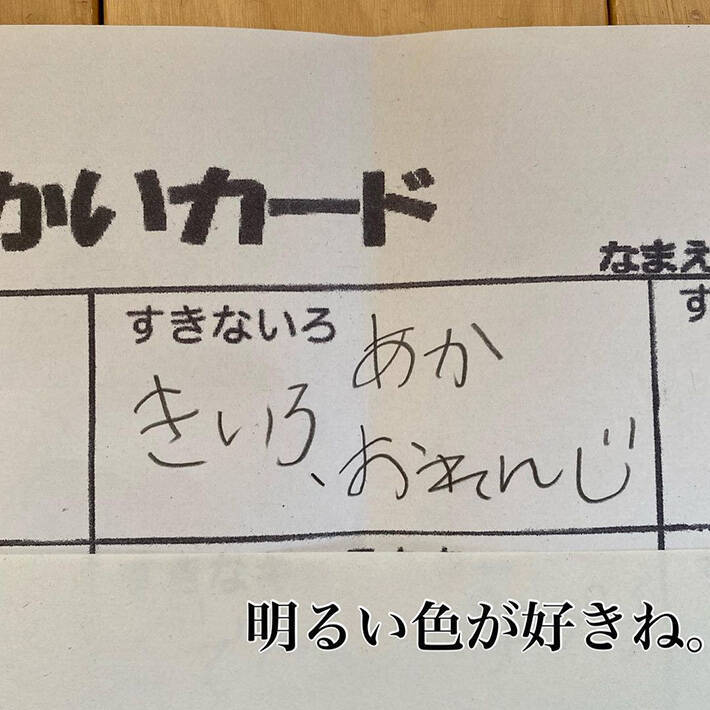 かいカード
なまえ
すきないろ
す
あか
きいろ、おれんじ
明るい色が好きね。